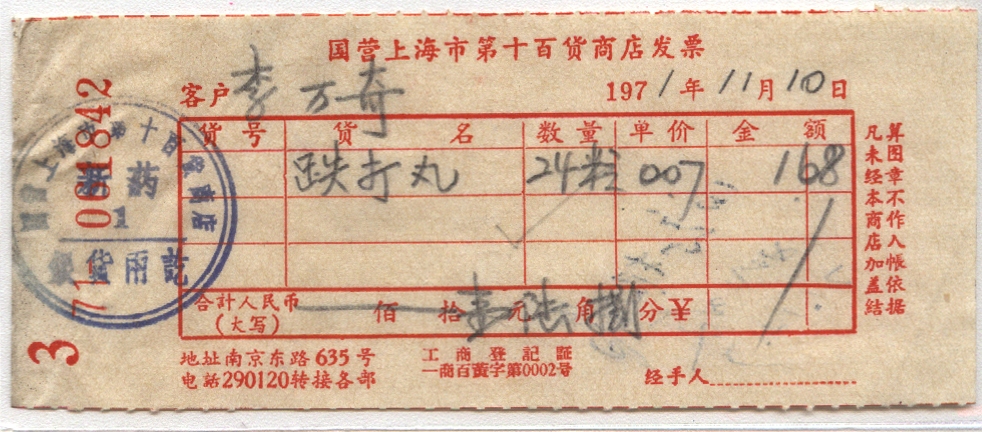 国营上海市第十百货商店发票
客户 李万奇 1971年11月10日
货号 货名 数量 单价 金额
跌打丸 24粒 007 168
合計人民币(大写) 佰拾壹元陆角捌分¥
地址南京东路635号
电話290120转接各部
工商登記証
一商百黄字第0002号
经手人
凡未经本商店加盖结
算图章不作入帐依据
3
71
061842
国营上海市第十百货商店
药
1
货